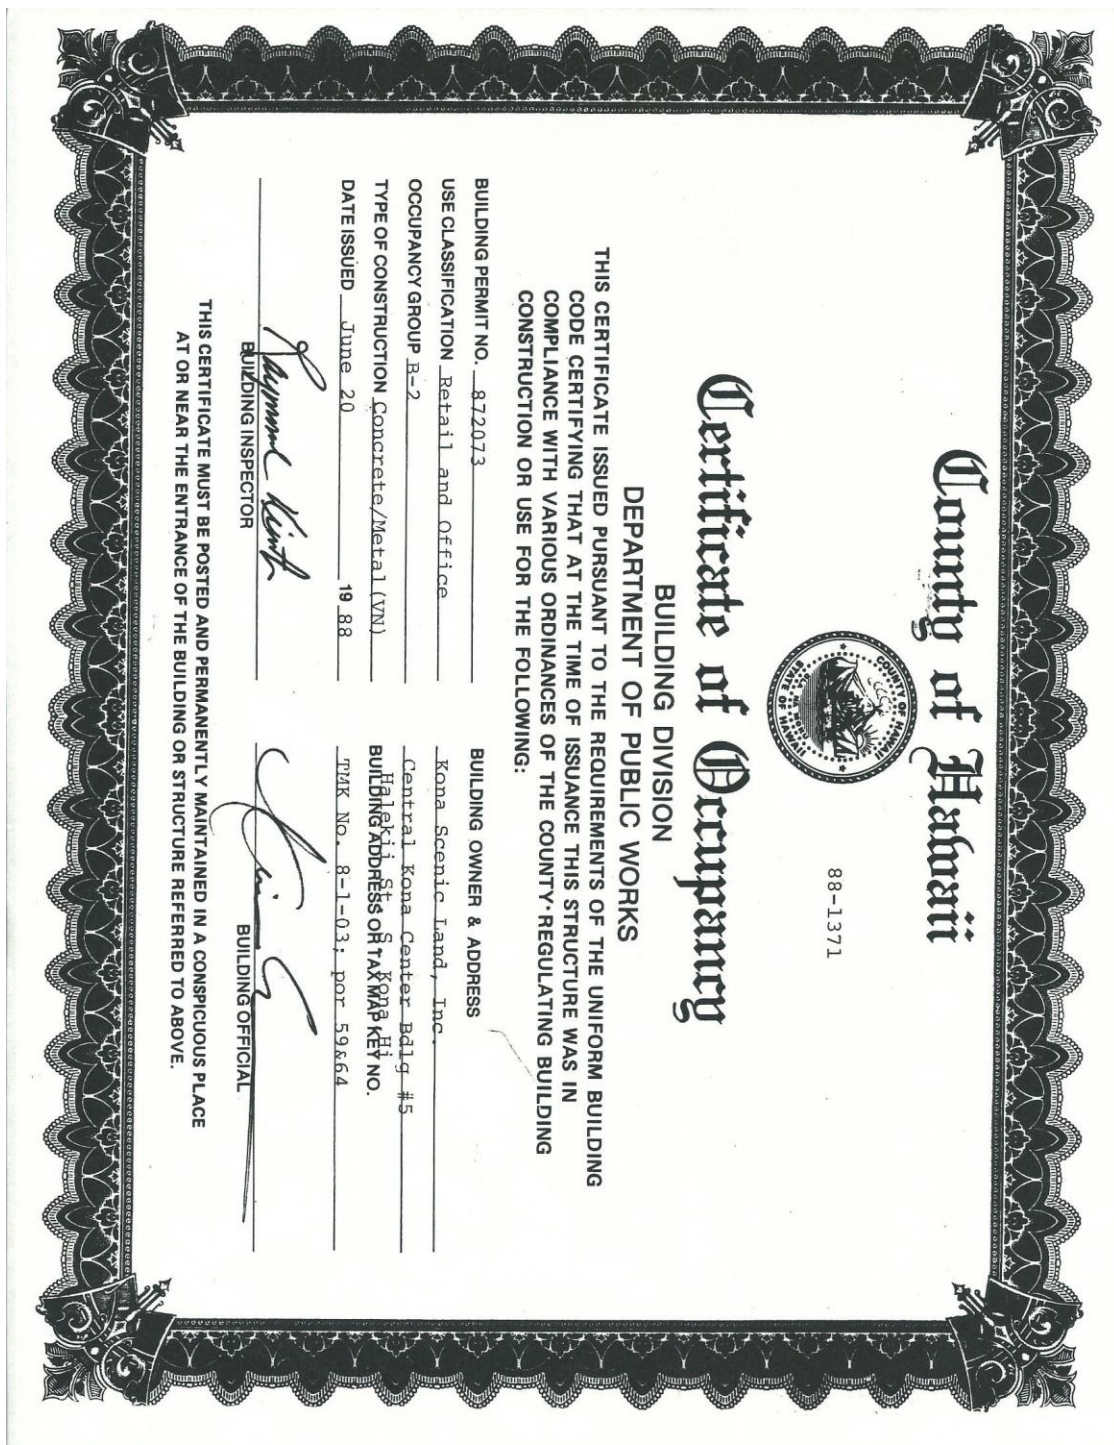 County of Hawaii
88-1371
COUNTY OF HAWAII
STATE OF HAWAII
Certificate of Occupancy
BUILDING DIVISION
DEPARTMENT OF PUBLIC WORKS
THIS CERTIFICATE ISSUED PURSUANT TO THE REQUIREMENTS OF THE UNIFORM BUILDING
CODE CERTIFYING THAT AT THE TIME OF ISSUANCE THIS STRUCTURE WAS IN
COMPLIANCE WITH VARIOUS ORDINANCES OF THE COUNTY REGULATING BUILDING
CONSTRUCTION OR USE FOR THE FOLLOWING:
BUILDING PERMIT NO. 872073
USE CLASSIFICATION Retail and Office
OCCUPANCY GROUP B-2
TYPE OF CONSTRUCTION Concrete/Metal(VN)
DATE ISSUED June 20 19 88
BUILDING INSPECTOR
BUILDING OWNER & ADDRESS
Kona Scenic Land, Inc.
Central Kona Center Bdlg #5
Halekii St. S. Kona Hi
BUILDING ADDRESS OR TAX MAP KEY NO.
TMK No. 8-1-03; por 59&64
BUILDING OFFICIAL
THIS CERTIFICATE MUST BE POSTED AND PERMANENTLY MAINTAINED IN A CONSPICUOUS PLACE
AT OR NEAR THE ENTRANCE OF THE BUILDING OR STRUCTURE REFERRED TO ABOVE.